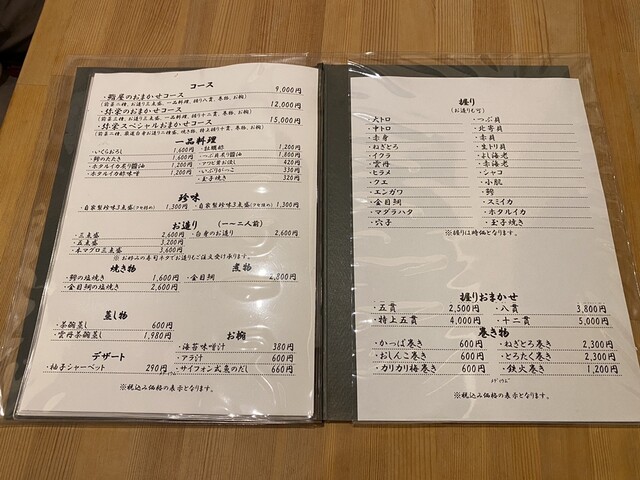 コース
・鮨屋のおまかせコース 9,000円
・弥栄のおまかせコース 12,000円
・弥栄スペシャルおまかせコース 15,000円
一品料理
・いくらおろし 1,600円
・鯵のたたき 1,600円
・ホタルイカ炙り醤油 1,200円
・ホタルイカ酢味噌 1,200円
1,200円
・つぶ貝炙り醤油 1,800円
420円
・いぶりがっこ 330円
・玉子焼き 320円
珍味
・自家製珍味3点盛 1,300円
・自家製珍味3点盛 1,300円
お造り (一〜二人前)
・三点盛 2,600円 ・白身のお造り 2,600円
・五点盛 3,200円
・本マグロ三点盛 3,600円
※お好みの寿司ネタでお造りもご注文受け承ります。
焼き物
・鯵の塩焼き 1,600円
・金目鯛の塩焼き 2,600円
煮物
・金目鯛 2,800円
蒸し物
・茶碗蒸し 600円
・雲丹茶碗蒸し 1,980円
お椀
・海苔味噌汁 380円
・アラ汁 600円
・サイフォン式魚のだし 660円
デザート
・柚子シャーベット 290円
※税込み価格の表示となります。
握り
(お造りも可)
・大トロ ・つぶ貝
・中トロ ・北寄貝
・赤身 ・赤貝
・ねぎとろ ・生トリ貝
・イクラ ・よし海老
・雲丹 ・赤海老
・ヒラメ ・シャコ
・クエ ・小肌
・エンガワ ・鯵
・金目鯛 ・スミイカ
・マグラハタ ・ホタルイカ
・穴子 ・玉子焼き
※握りは時価となります。
握りおまかせ
・五貫 2,500円 ・八貫 3,800円
・特上五貫 4,000円 ・十二貫 5,000円
巻き物
・かっぱ巻き 600円 ・ねぎとろ巻き 2,300円
・おしんこ巻き 600円 ・とろたく巻き 2,300円
・カリカリ梅巻き 600円 ・鉄火巻き 1,200円
※税込み価格の表示となります。